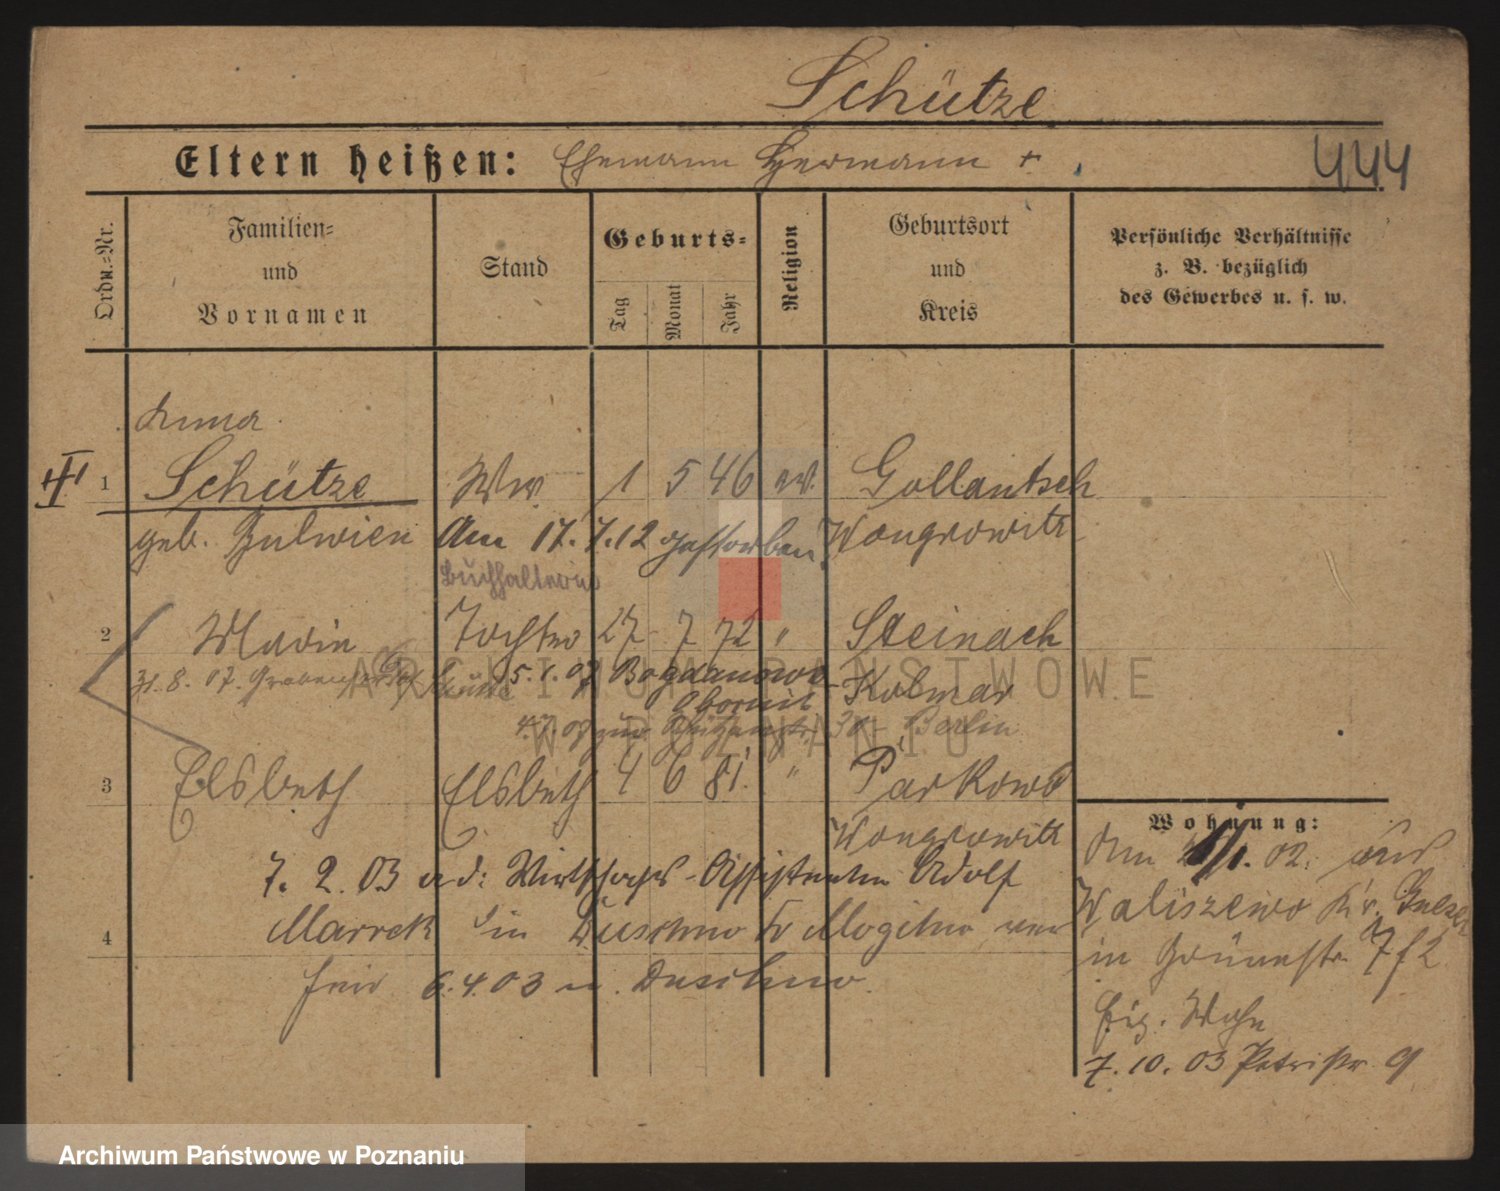 Schütze
Eltern heißen: Ehemann Hermann +
444
Ordn.-Nr.
Familien-
und
Vornamen
Stand
Geburts-
Tag
Monat
Jahr
Religion
Geburtsort
und
Kreis
Persönliche Verhältnisse
z. B. bezüglich
des Gewerbes u. s. w.
Anna
III
1 Schütze Ww 1 5 46 ev. Gollantsch
geb. Gulwien Am 17.7.12 gestorben Wongrowitz
Buchhalterin
2 Marie Tochter 27 7 72 " Steinach
31.8.07. 5.1.07 Bogdanowo Kolmar
Obornik
4.7.08 zur 30 Berlin
3 Elsbeth Elsbeth 4 6 81. " Parkowo
Wongrowitz
7. 2. 03 a d: Wirtschafts-Assistenten Adolf
4 Marrek in Duschno Kr Mogilno ver
6.4.03 n. Duschno.
Wohnung:
Am /1. 02. aus
Waliszewo Kr. Gnesen
in Grünestr. 7 f 2
Eig. Wohn
7. 10. 03 Petristr. 9
ARCHIWUM PAŃSTWOWE
W POZNANIU
Archiwum Państwowe w Poznaniu